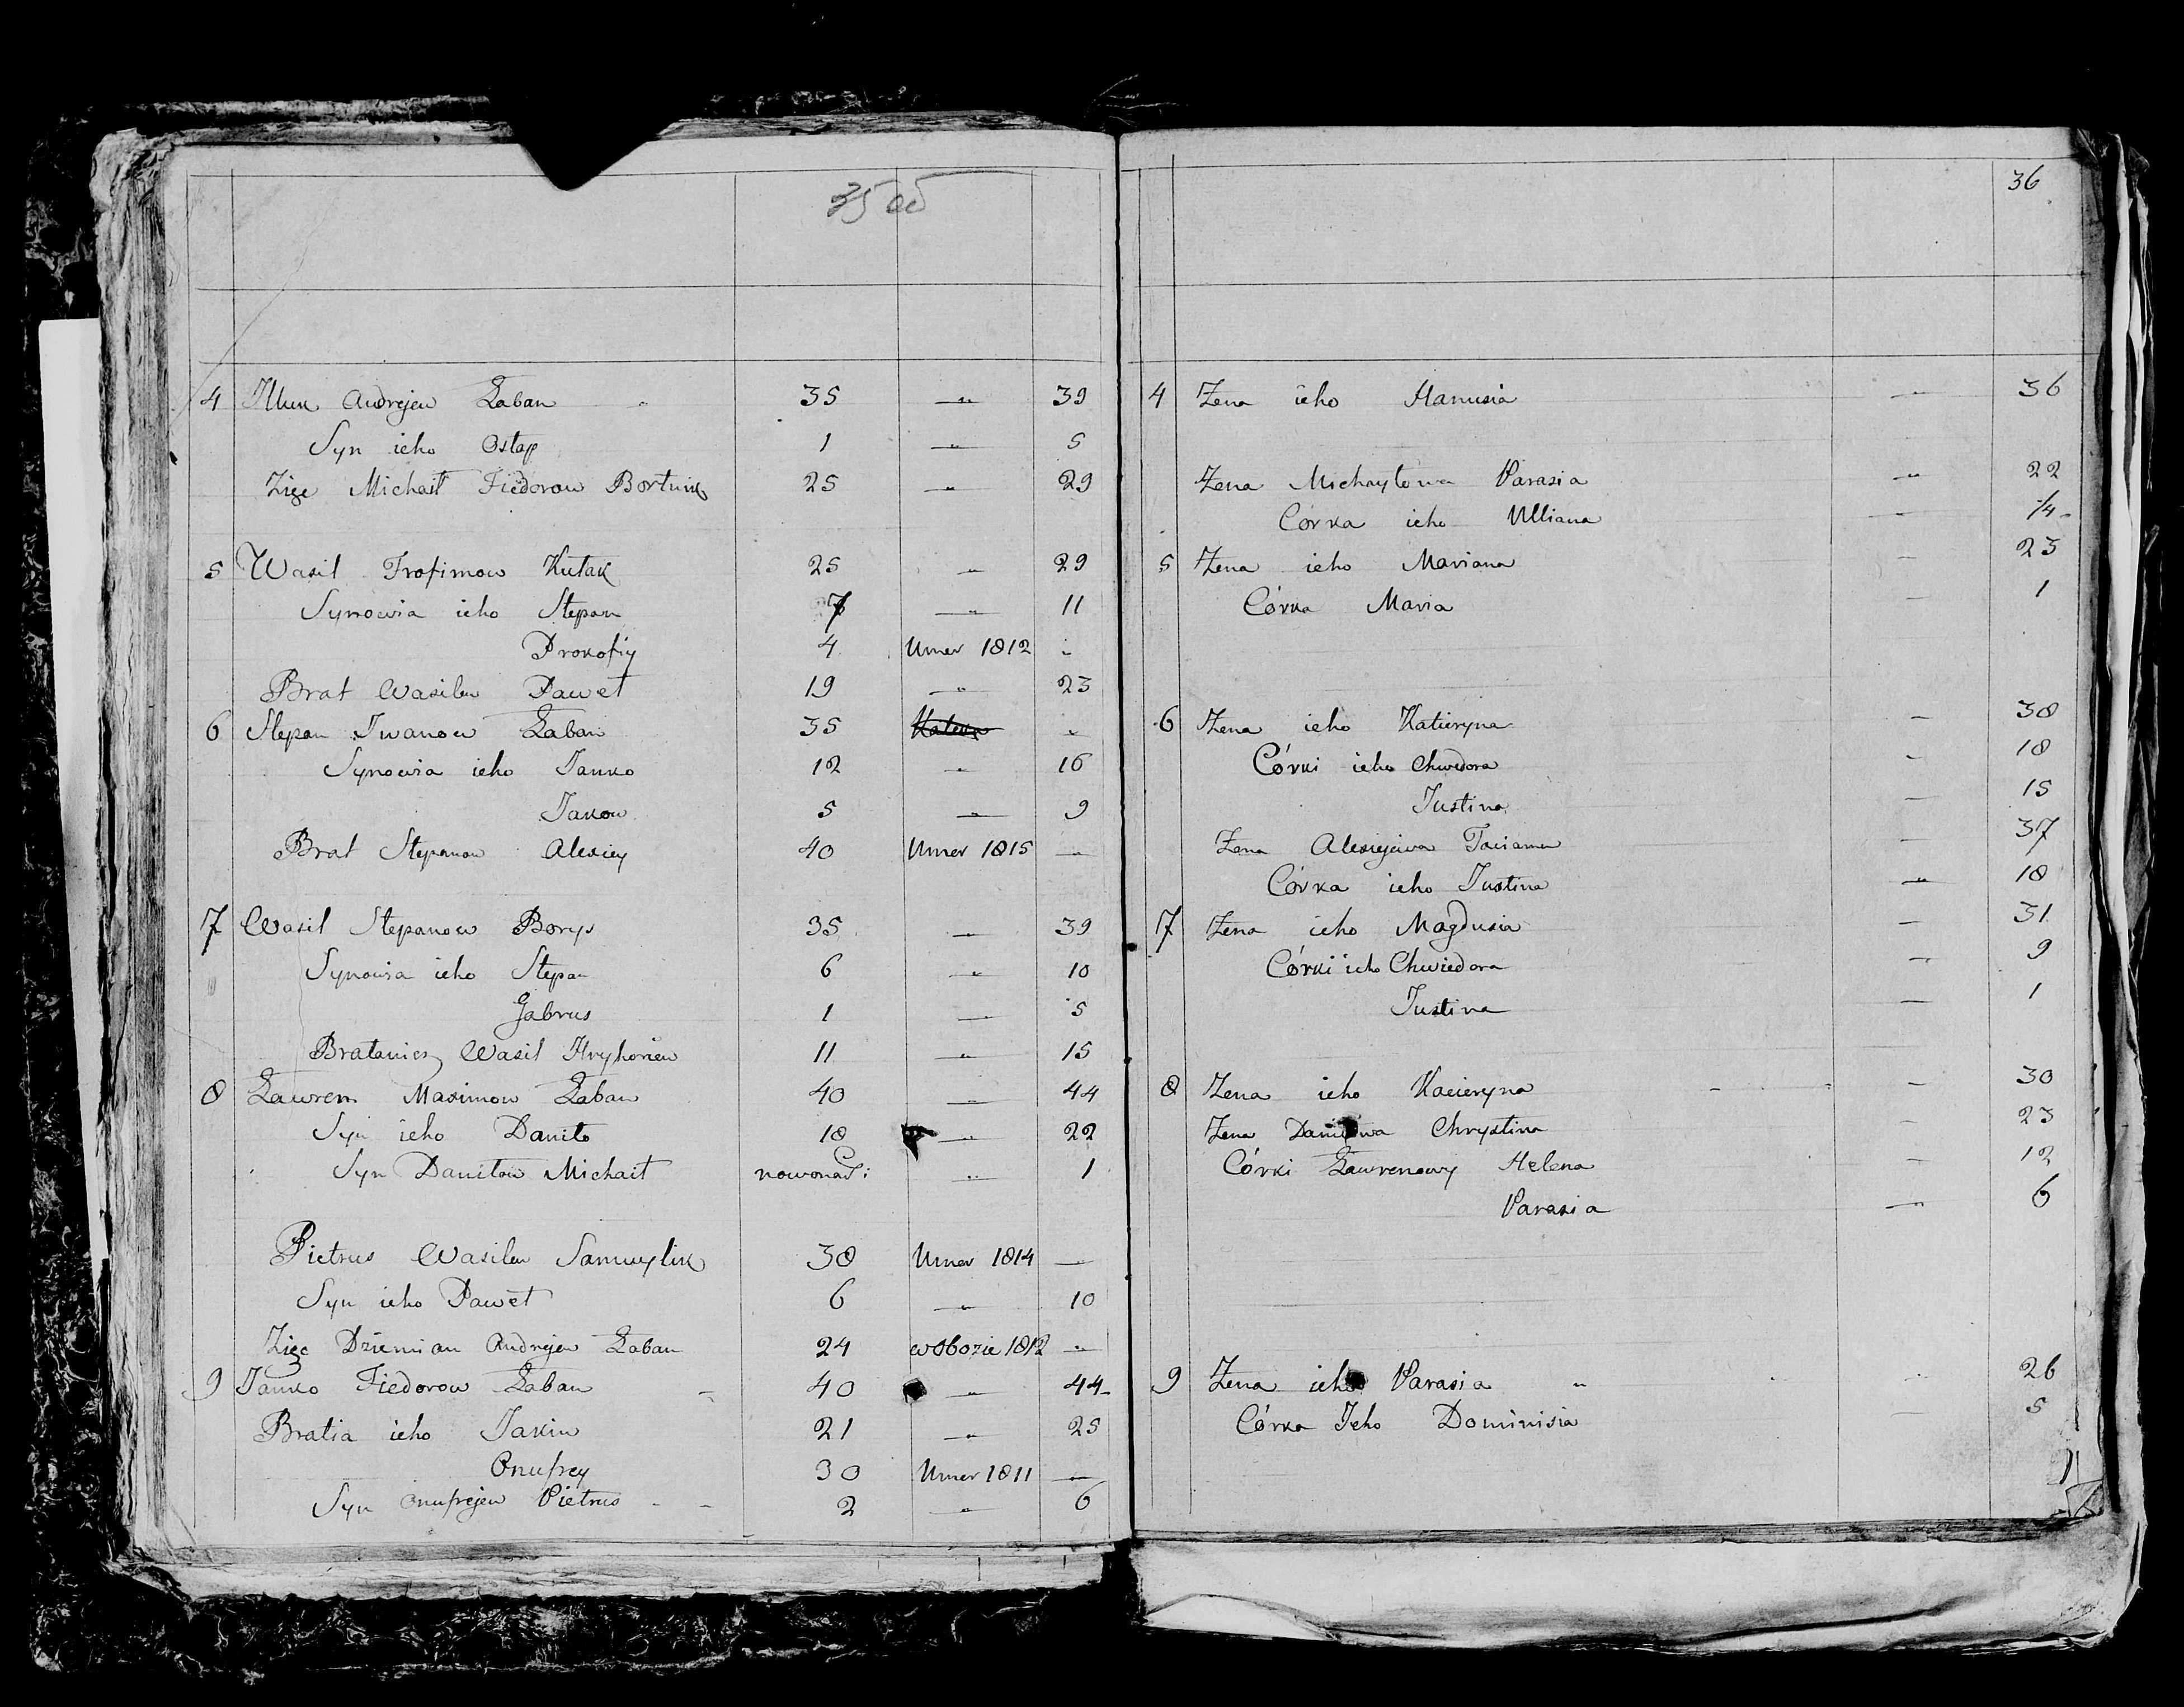 35 об
4 Illuk Andrejew Łaban 35 — 39
Syn icho Ostap 1 — 5
Zięc Michaił Fiedorow Bortnik 25 — 29
5 Wasil Trofimow Kutak 25 — 29
Synowia icho Stepan 7 — 11
Prokofiy 4 Umer 1812 —
Brat Wasilew Paweł 19 — 23
6 Stepan Iwanow Łaban 35 —
Synowia icho Janko 12 — 16
Jakow 5 — 9
Brat Stepanow Alexiey 40 Umer 1815 —
7 Wasil Stepanow Borys 35 — 39
Synowia icho Stepan 6 — 10
Gabrus 1 — 5
Bratanicz Wasil Hryhoriew 11 — 15
8 Ławren Maximow Łaban 40 — 44
Syn icho Daniło 18 — 22
Syn Daniłow Michaił nowonar: — 1
Pietrus Wasilew Samuylik 38 Umer 1814 —
Syn icho Paweł 6 — 10
Zięc Dziemian Andrejew Łaban 24 w Obozie 1812 —
9 Janko Fiedorow Łaban 40 — 44
Bratia icho Jakim 21 — 25
Onufrey 30 Umer 1811 —
Syn Onufrejew Pietrus 2 — 6
36
4 Żena icho Hanusia — 36
Żena Michayłowa Parasia — 22
Córka icho Ulliana — 1/4
5 Żena icho Mariana — 23
Córka Maria — 1
6 Żena icho Katieryna — 38
Córki icho Chwedora — 18
Justina — 15
Żena Alexiejewa Taciana — 37
Córka icho Justina — 18
7 Żena icho Magdusia — 31
Córki icho Chwiedora — 9
Justina — 1
8 Żena icho Kacieryna — 30
Żena Daniłowa Chrystina — 23
Córki Ławrenowy Helena — 12
Parasia — 6
9 Żena icho Parasia — 26
Córka Jcho Dominisia — 5